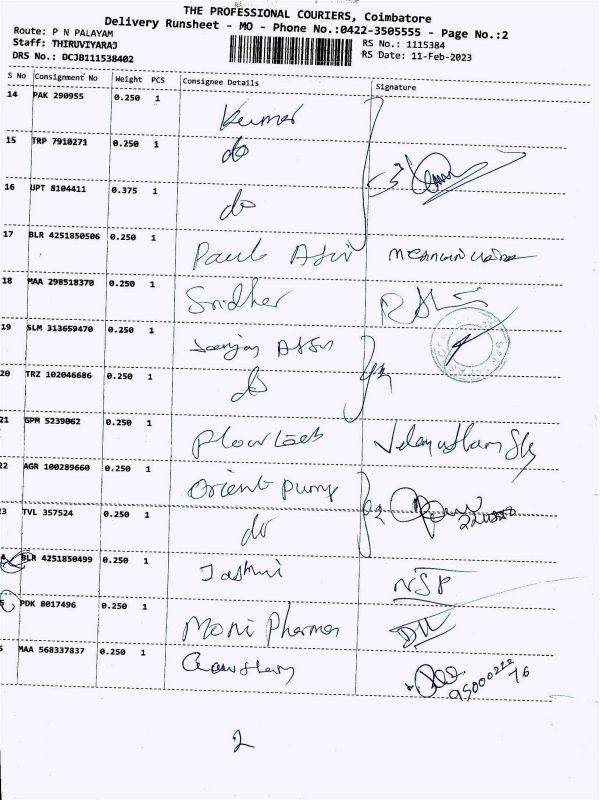 THE PROFESSIONAL COURIERS, Coimbatore
Delivery Runsheet - MO - Phone No.:0422-3505555 - Page No.:2
Route: P N PALAYAM
Staff: THIRUVIYARAJ RS No.: 1115384
DRS No.: DCJB111538402 RS Date: 11-Feb-2023
S No Consignment No Weight PCS Consignee Details Signature
14 PAK 290955 0.250 1 Kumar
15 TRP 7910271 0.250 1 do
16 UPT 8104411 0.375 1 do
17 BLR 4251850506 0.250 1 Paul
18 MAA 298518370 0.250 1 Sridher
19 SLM 313659470 0.250 1
20 TRZ 102046686 0.250 1 do
21 GPM 5239062 0.250 1
22 AGR 100289660 0.250 1 Orient Pump
23 TVL 357524 0.250 1 do
BLR 4251850499 0.250 1 NSP
PDK 8017496 0.250 1 Moni Pharma
MAA 568337837 0.250 1
2